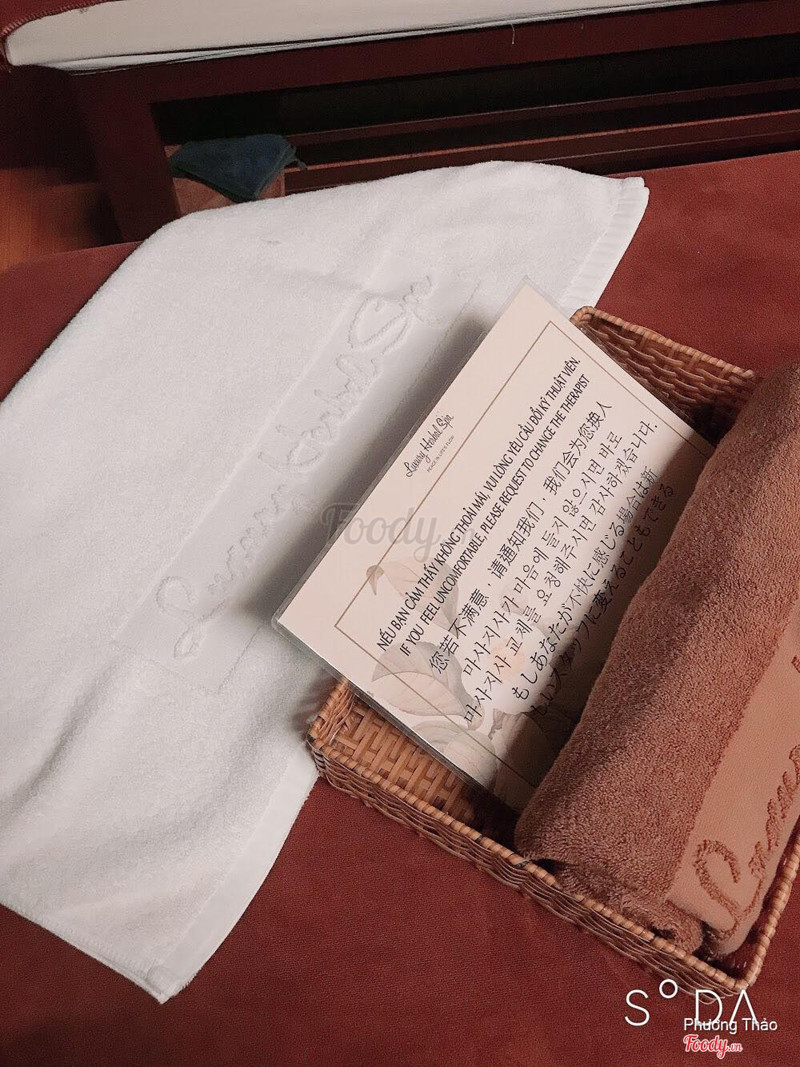 Luxury Herbal Spa
Luxury Herbal Spa
NẾU BẠN CẢM THẤY KHÔNG THOẢI MÁI, VUI LÒNG YÊU CẦU ĐỔI KỸ THUẬT VIÊN.
IF YOU FEEL UNCOMFORTABLE, PLEASE REQUEST TO CHANGE THE THERAPIST
您若不满意，请通知我们，我们会为您换人
마사지사가 마음에 들지 않으시면 바로
마사지사 교체를 요청해주시면 감사하겠습니다.
もしあなたが不快に感じる場合は新
しいスタッフに変えることもできる
Foody.vn
SODA
Phương Thảo
Foody.vn